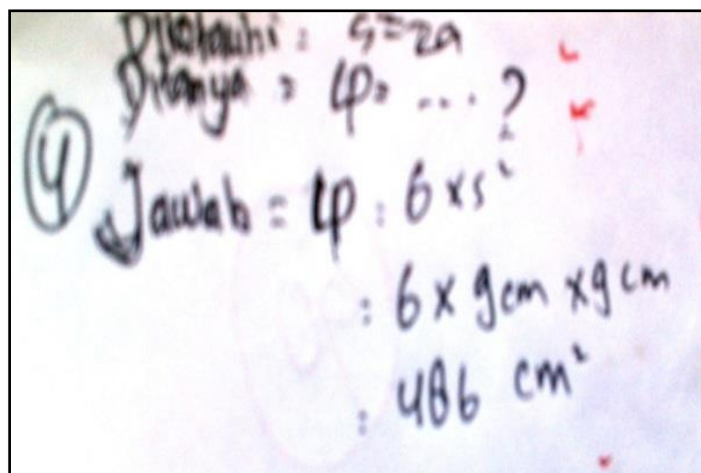 Diketahui : s = 2a
Ditanya = Lp = .... ?
4 Jawab = Lp : 6 x s²
: 6 x 9 cm x 9 cm
: 486 cm²